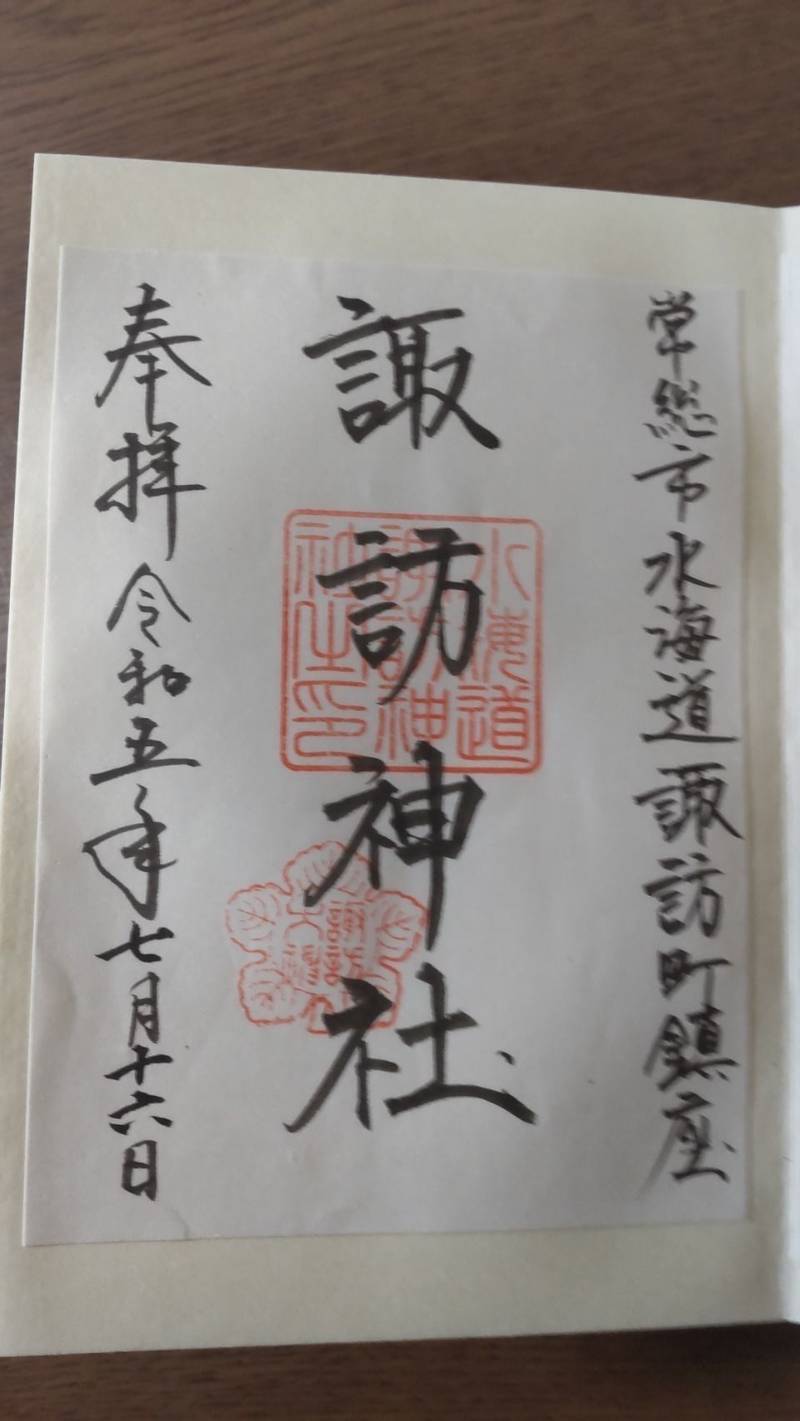 常総市水海道諏訪町鎮座
諏訪神社
水海道
諏訪神
社之印
奉拝 令和五年七月十六日